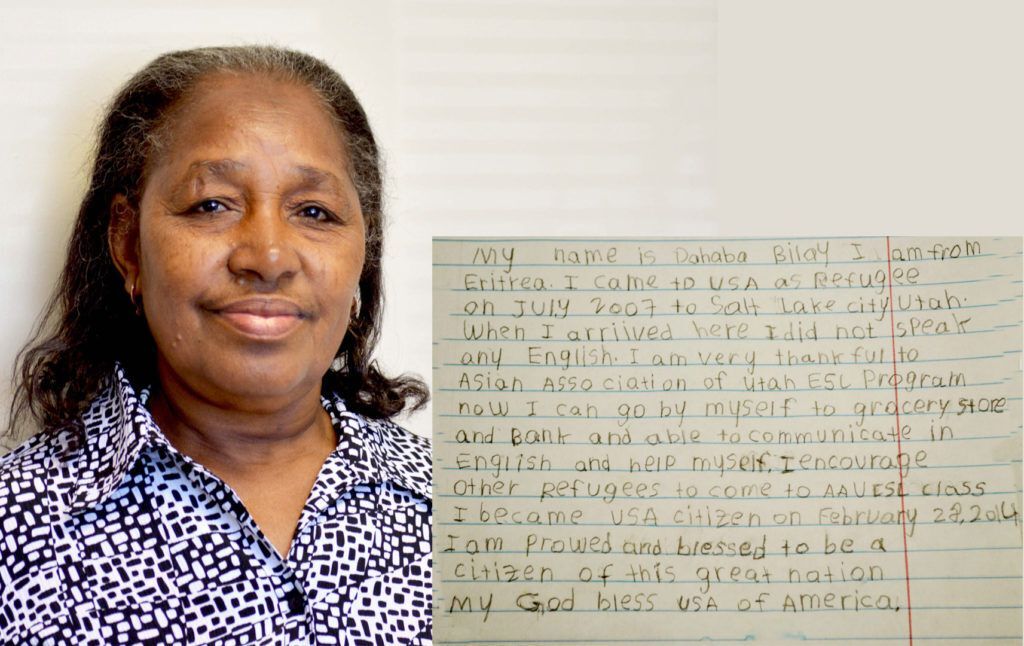 My name is Dahaba Bilay I am from
Eritrea. I came to USA as Refugee
on JULY 2007 to Salt Lake city Utah.
When I arriived here I did not speak
any English. I am very thankful to
Asian Association of Utah ESL Program
now I can go by myself to grocery store
and Bank and able to communicate in
English and help myself. I encourage
Other Refugees to come to AAU ESL class
I became USA citizen on February 28, 2014
I am Prowed and blessed to be a
citizen of this great nation
My God bless USA of America.